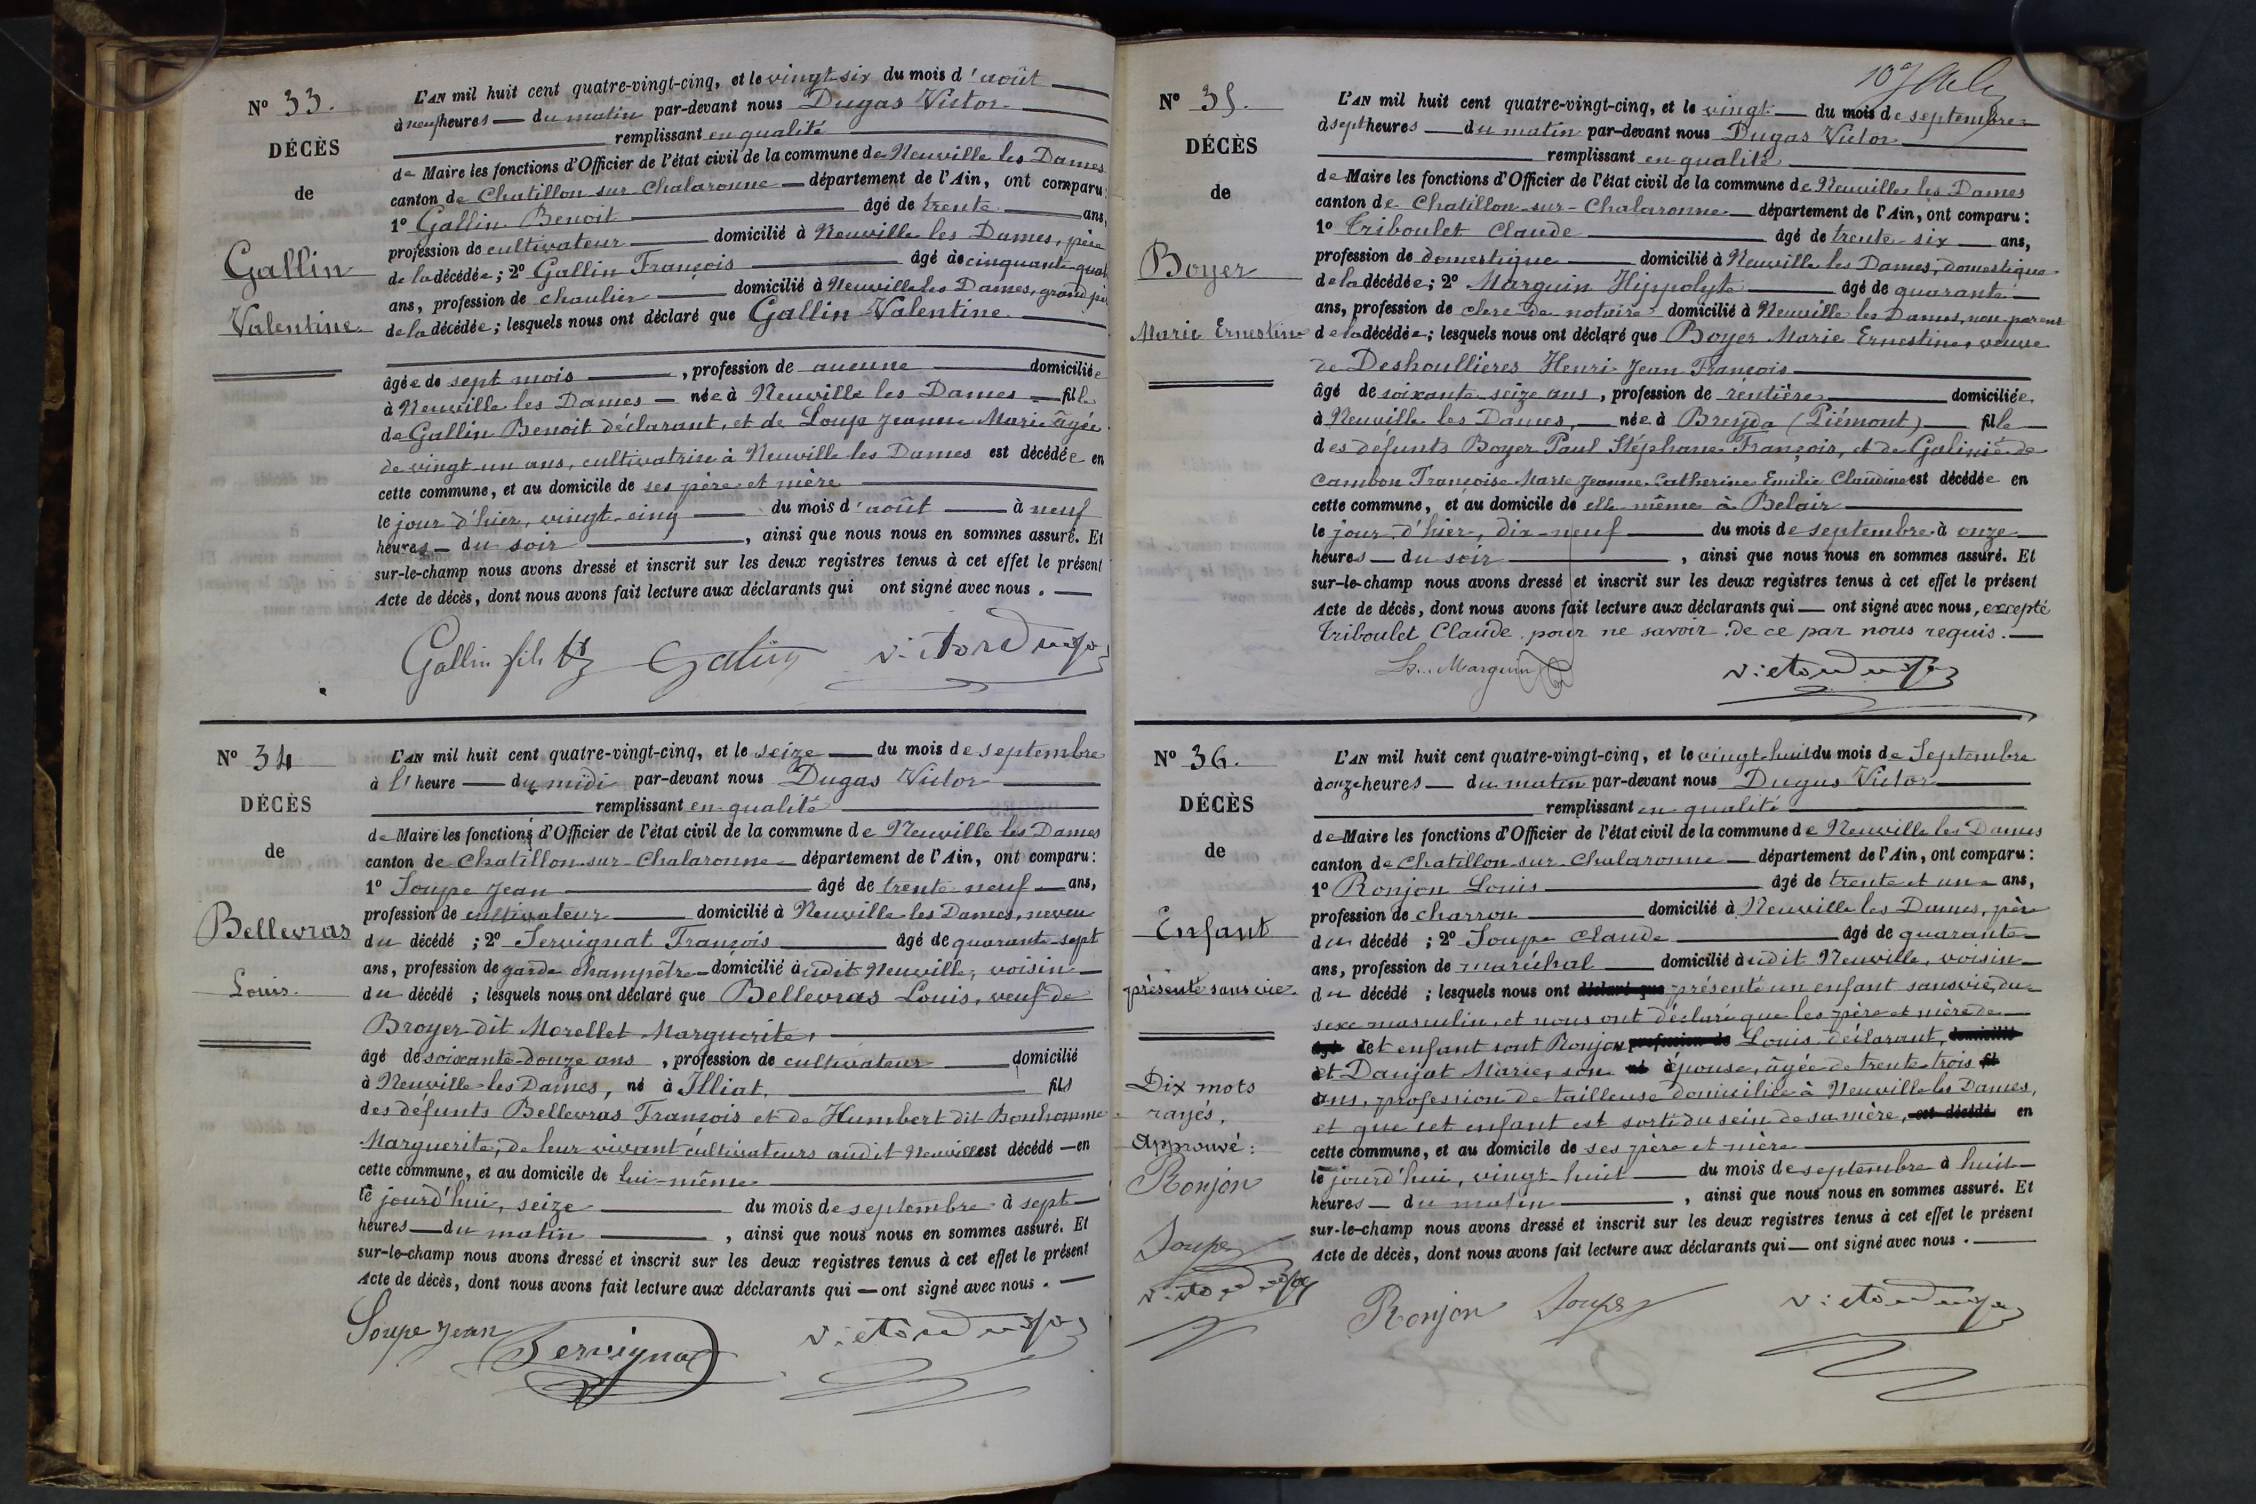 N° 33.
DÉCÈS
de
Gallin
Valentine
L'AN mil huit cent quatre-vingt-cinq, et le vingt-six du mois d'août
à neuf heures du matin par-devant nous Dugas Victor
remplissant en qualité
de Maire les fonctions d'Officier de l'état civil de la commune de Neuville les Dames
canton de Chatillon sur Chalaronne département de l'Ain, ont comparu:
1° Gallin Benoit âgé de trente ans,
profession de cultivateur domicilié à Neuville les Dames, père
de la décédée; 2° Gallin François âgé de cinquante-quat
ans, profession de chaulier domicilié à Neuville les Dames, grand pè
de la décédée; lesquels nous ont déclaré que Gallin Valentine
âgée de sept mois, profession de aucune domiciliée
à Neuville les Dames née à Neuville les Dames fille
de Gallin Benoit déclarant, et de Loup Jeanne Marie âgée
de vingt-un ans, cultivatrice à Neuville les Dames est décédée en
cette commune, et au domicile de ses père et mère
le jour d'hier, vingt-cinq du mois d'août à neuf
heures du soir, ainsi que nous nous en sommes assuré. Et
sur-le-champ nous avons dressé et inscrit sur les deux registres tenus à cet effet le présent
Acte de décès, dont nous avons fait lecture aux déclarants qui ont signé avec nous.
Gallin fils Galin victor dugas
N° 34
DÉCÈS
de
Bellevras
Louis.
L'AN mil huit cent quatre-vingt-cinq, et le seize du mois de septembre
à l'heure du midi par-devant nous Dugas Victor
remplissant en qualité
de Maire les fonctions d'Officier de l'état civil de la commune de Neuville les Dames
canton de Chatillon-sur-Chalaronne département de l'Ain, ont comparu:
1° Soupe Jean âgé de trente-neuf ans,
profession de cultivateur domicilié à Neuville les Dames, neveu
du décédé; 2° Servignat François âgé de quarante-sept
ans, profession de garde champêtre domicilié à udit Neuville, voisin
du décédé; lesquels nous ont déclaré que Bellevras Louis, veuf de
Broyer dit Morellet Marguerite,
âgé de soixante-douze ans, profession de cultivateur domicilié
à Neuville-les Dames, né à Illiat, fils
des défunts Bellevras François et de Humbert dit Bonhomme
Marguerite, de leur vivant cultivateurs audit Neuville est décédé en
cette commune, et au domicile de lui-même
le jourd'hui, seize du mois de septembre à sept
heures du matin, ainsi que nous nous en sommes assuré. Et
sur-le-champ nous avons dressé et inscrit sur les deux registres tenus à cet effet le présent
Acte de décès, dont nous avons fait lecture aux déclarants qui ont signé avec nous.
Soupe Jean Servignat victor dugas
N° 35.
DÉCÈS
de
Boyer
Marie Ernestine
L'AN mil huit cent quatre-vingt-cinq, et le vingt du mois de septembre
à sept heures du matin par-devant nous Dugas Victor
remplissant en qualité
de Maire les fonctions d'Officier de l'état civil de la commune de Neuville les Dames
canton de Chatillon-sur-Chalaronne département de l'Ain, ont comparu:
1° Triboulet Claude âgé de trente-six ans,
profession de domestique domicilié à Neuville les Dames, domestique
de la décédée; 2° Marguin Hippolyte âgé de quarante
ans, profession de clerc de notaire domicilié à Neuville les Dames, non parent
de la décédée; lesquels nous ont déclaré que Boyer Marie Ernestine, veuve
de Deshoullieres Henri Jean François
âgé de soixante-seize ans, profession de rentière domiciliée
à Neuville les Dames, née à Breyda (Piémont) fille
des défunts Boyer Paul Stéphane François, et de Galinié de
Cambon Françoise Marie Jeanne Catherine Emilie Claudine est décédée en
cette commune, et au domicile de elle même à Belair
le jour d'hier, dix-neuf du mois de septembre à onze
heures du soir, ainsi que nous nous en sommes assuré. Et
sur-le-champ nous avons dressé et inscrit sur les deux registres tenus à cet effet le présent
Acte de décès, dont nous avons fait lecture aux déclarants qui ont signé avec nous, excepté
Triboulet Claude pour ne savoir, de ce par nous requis.
H. Marguin victor dugas
N° 36.
DÉCÈS
de
Enfant
présenté sans vie.
Dix mots
rayés.
Approuvé:
Ronjon
Soupe
victor dugas
L'AN mil huit cent quatre-vingt-cinq, et le vingt-huit du mois de Septembre
à onze heures du matin par-devant nous Dugas Victor
remplissant en qualité
de Maire les fonctions d'Officier de l'état civil de la commune de Neuville les Dames
canton de Chatillon-sur-Chalaronne département de l'Ain, ont comparu:
1° Ronjon Louis âgé de trente et un ans,
profession de charron domicilié à Neuville les Dames, père
du décédé; 2° Soupe Claude âgé de quarante
ans, profession de maréchal domicilié à udit Neuville, voisin
du décédé; lesquels nous ont déclaré que présenté un enfant sans vie, du
sexe masculin, et nous ont déclaré que les père et mère de
âgé de t enfant sont Ronjon profession de Louis déclarant, domicilié
et Danjat Marie, son né épouse, âgée de trente-trois fil
ans, profession de tailleuse domiciliée à Neuville les Dames,
et que cet enfant est sorti du sein de sa mère, est décédé en
cette commune, et au domicile de ses père et mère
le jourd'hui, vingt-huit du mois de septembre à huit
heures du matin, ainsi que nous nous en sommes assuré. Et
sur-le-champ nous avons dressé et inscrit sur les deux registres tenus à cet effet le présent
Acte de décès, dont nous avons fait lecture aux déclarants qui ont signé avec nous.
Ronjon Soupe victor dugas